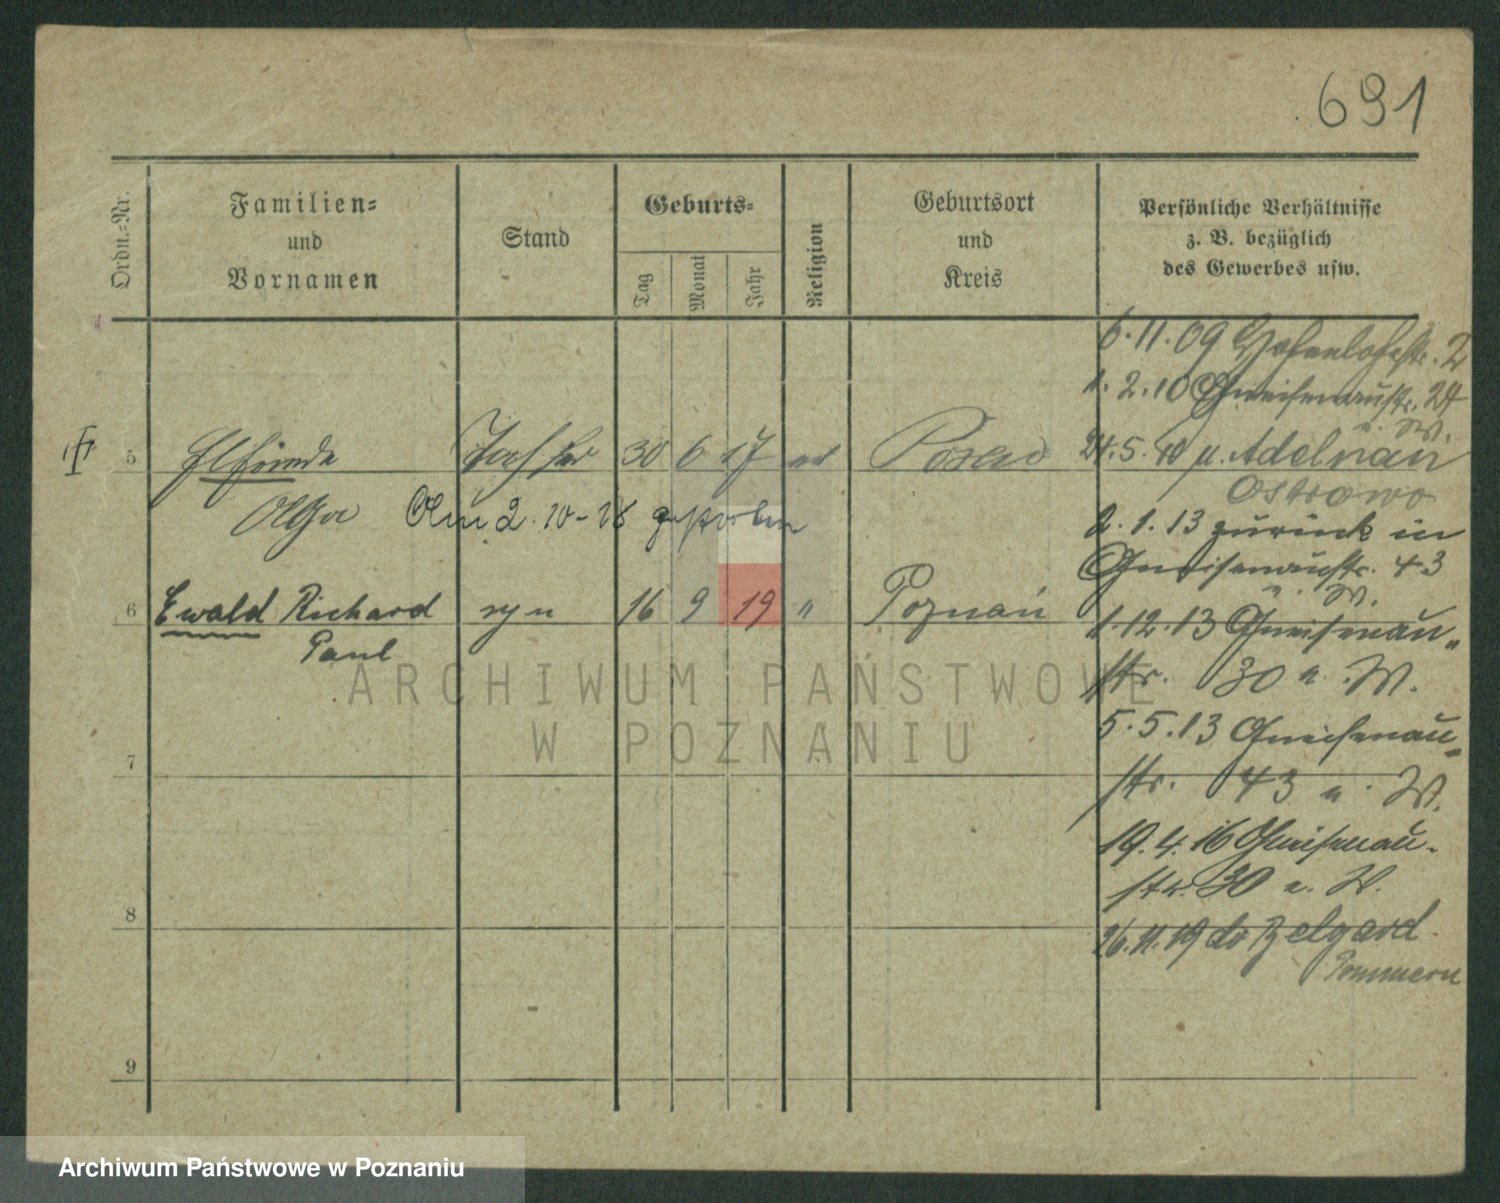 691
Ordn.-Nr.
Familien-
und
Vornamen
Stand
Geburts-
Tag
Monat
Jahr
Religion
Geburtsort
und
Kreis
Persönliche Verhältnisse
z. B. bezüglich
des Gewerbes usw.
6.11.09 Hohenlohestr. 2
1.2.10 Gneisenaustr. 24
u. W.
5 Elfriede Tochter 30 6 17 ev Posen
24.5.10 n. Adelnau
Ostrowo
Olga Am 2.10-18 gestorben
2.1.13 zurück in
Gneisenaustr. 43
u. W.
6 Ewald Richard syn 16 9 19 " Poznań
Paul
1.12.13 Gneisenau-
str. 30 u. W.
5.5.13 Gneisenau-
str. 43 u. W.
7
19.4.16 Gneisenau-
str. 30 u. W.
8
26.11.19 do Belgard
Pommern
9
ARCHIWUM PAŃSTWOWE
W POZNANIU
Archiwum Państwowe w Poznaniu